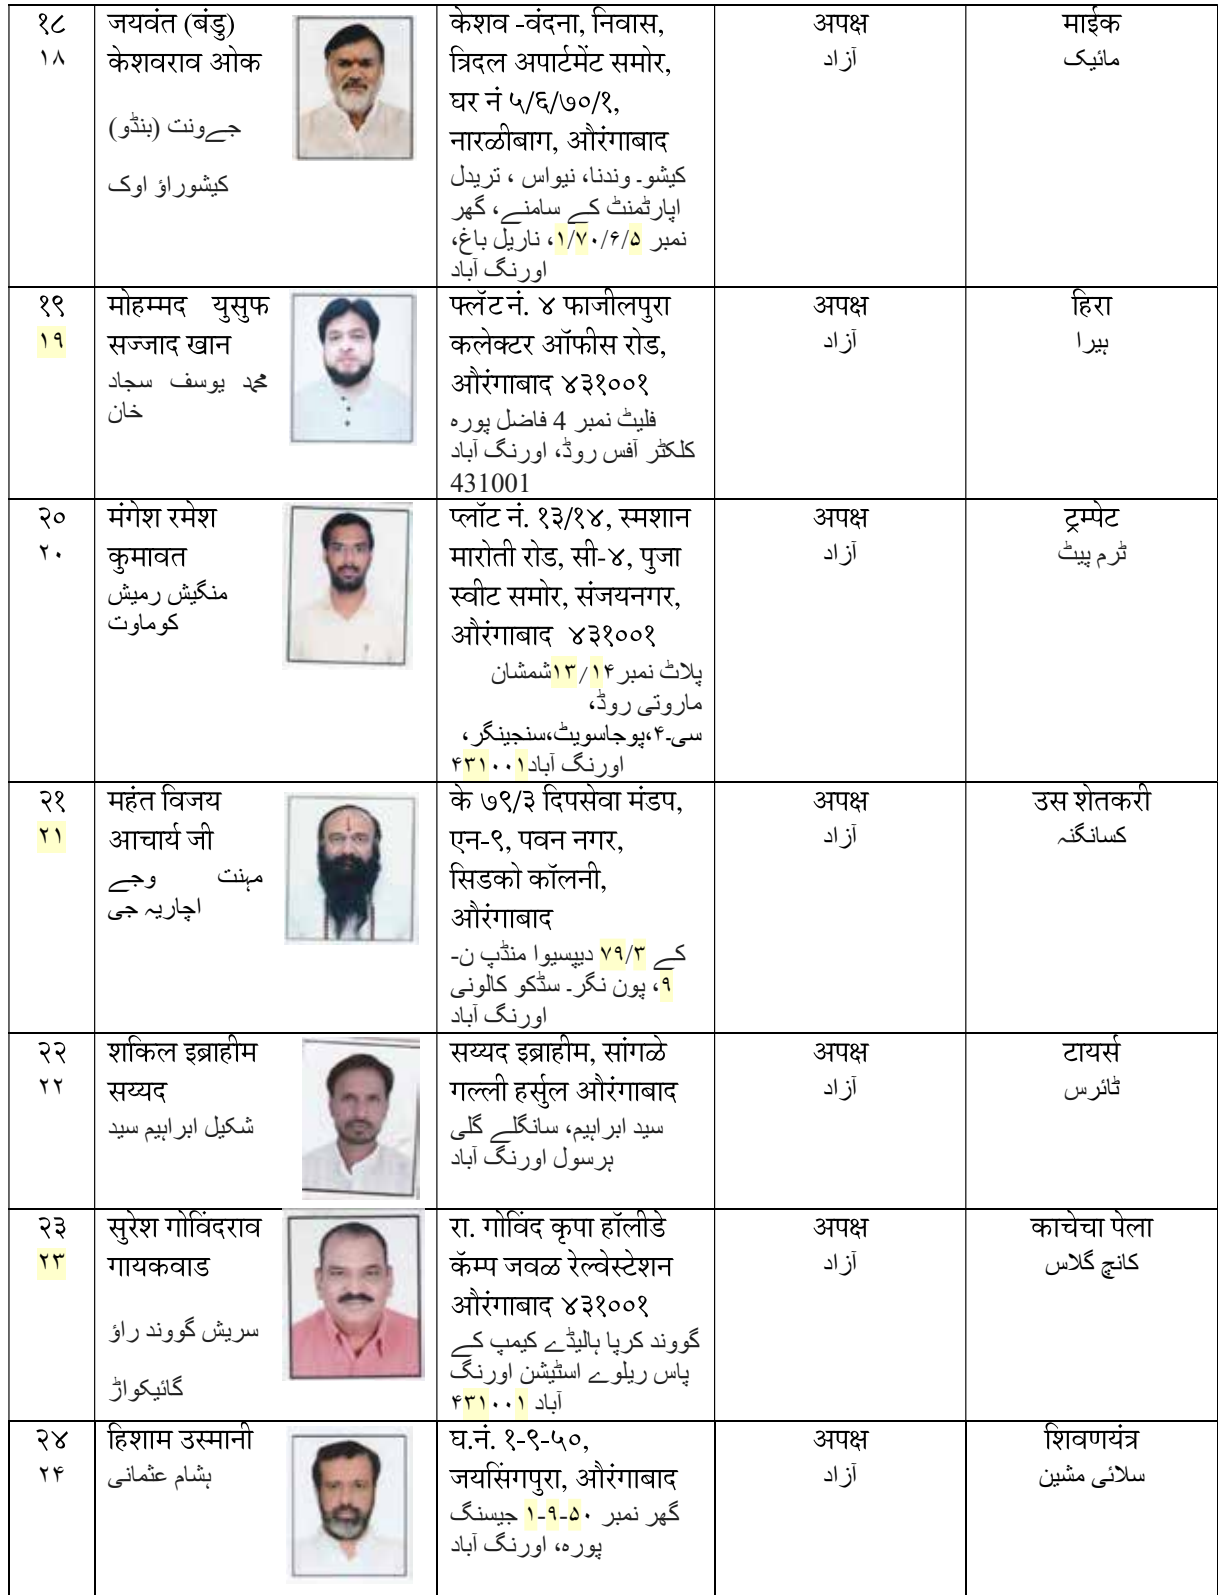 १८
۱۸
जयवंत (बंडु)
केशवराव ओक
جےونت (بنڈو)
کیشوراؤ اوک
केशव -वंदना, निवास,
त्रिदल अपार्टमेंट समोर,
घर नं ५/६/७०/१,
नारळीबाग, औरंगाबाद
کیشو۔ وندنا، نیواس ، تریدل
اپارٹمنٹ کے سامنے، گھر
نمبر ۵/۶/۷۰/۱، ناریل باغ،
اورنگ آباد
अपक्ष
آزاد
माईक
مائیک
१९
۱۹
मोहम्मद युसुफ
सज्जाद खान
محمد یوسف سجاد
خان
फ्लॅट नं. ४ फाजीलपुरा
कलेक्टर ऑफीस रोड,
औरंगाबाद ४३१००१
فلیٹ نمبر 4 فاضل پورہ
کلکٹر آفس روڈ، اورنگ آباد
431001
अपक्ष
آزاد
हिरा
ہیرا
२०
۲۰
मंगेश रमेश
कुमावत
منگیش رمیش
کوماوت
प्लॉट नं. १३/१४, स्मशान
मारोती रोड, सी-४, पुजा
स्वीट समोर, संजयनगर,
औरंगाबाद ४३१००१
پلاٹ نمبر ۱۳/۱۴شمشان
ماروتی روڈ،
سی۔۴،پوجاسویٹ،سنجینگر،
اورنگ آباد۴۳۱۰۰۱
अपक्ष
آزاد
ट्रम्पेट
ٹرم پیٹ
२१
۲۱
महंत विजय
आचार्य जी
مہنت وجے
اچاریہ جی
के ७९/३ दिपसेवा मंडप,
एन-९, पवन नगर,
सिडको कॉलनी,
औरंगाबाद
کے ۷۹/۳ دیپسیوا منڈپ ن-
۹، پون نگر۔ سڈکو کالونی
اورنگ آباد
अपक्ष
آزاد
उस शेतकरी
کسانگنہ
२२
۲۲
शकिल इब्राहीम
सय्यद
شکیل ابراہیم سید
सय्यद इब्राहीम, सांगळे
गल्ली हर्सुल औरंगाबाद
سید ابراہیم، سانگلے گلی
ہرسول اورنگ آباد
अपक्ष
آزاد
टायर्स
ٹائرس
२३
۲۳
सुरेश गोविंदराव
गायकवाड
سریش گووند راؤ
گائیکواڑ
रा. गोविंद कृपा हॉलीडे
कॅम्प जवळ रेल्वेस्टेशन
औरंगाबाद ४३१००१
گووند کرپا ہالیڈے کیمپ کے
پاس ریلوے اسٹیشن اورنگ
آباد ۴۳۱۰۰۱
अपक्ष
آزاد
काचेचा पेला
کانچ گلاس
२४
۲۴
हिशाम उस्मानी
ہشام عثمانی
घ.नं. १-९-५०,
जयसिंगपुरा, औरंगाबाद
گھر نمبر ۱-۹-۵۰ جیسنگ
پورہ، اورنگ آباد
अपक्ष
آزاد
शिवणयंत्र
سلائی مشین